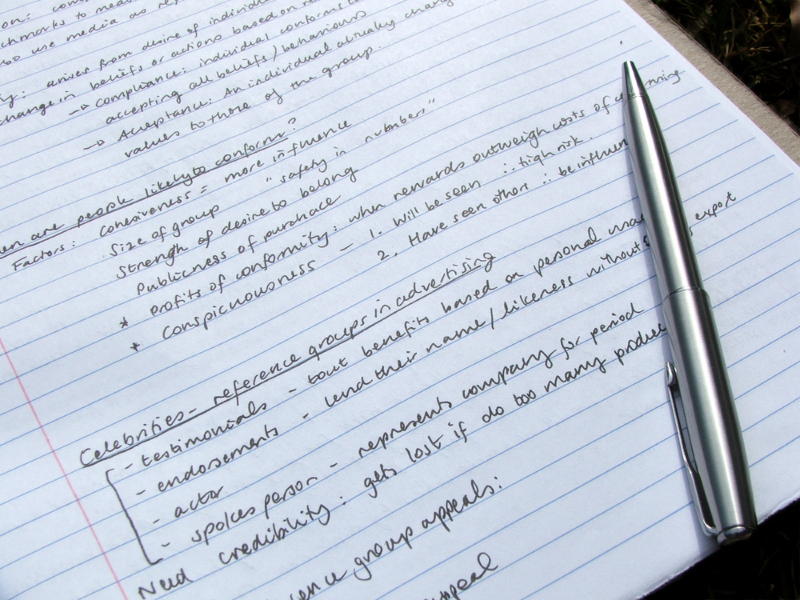 chmarks to
use media as
ity: arises from desire of individual
change in beliefs or actions based on
→ compliance: individual conforms
accepting all beliefs/behaviours
→ Acceptance: An individual actually chang
values to those of the group.
en are people likely to conform?
Factors: Cohesiveness = more influence
Size of group "safety in numbers"
Strength of desire to belong
Publicness of purchace
* profits of conformity: when rewards outweigh costs of
* conspicuousness - 1. Will be seen ∴ high risk.
2. Have seen others ∴ be influen
Celebrities - reference groups in advertising
- testimonials - tout benefits based on personal
- endorsements - lend their name/likeness without expert
- actor
- spokesperson - represents company for period
Need credibility: gets lost if do too many produc
ence group appeals:
ppeal